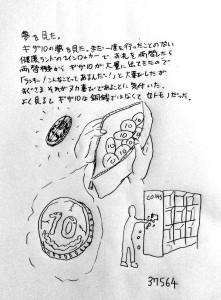 夢を見た。
ギザ10の夢を見た。まだ一度も行ったことのない
健康ランドのコインロッカーで、お札を両替したら
両替機から ギザ10が大量に出てきたので
「ラッキー！こんなことってあるんだー！」と大喜びしたが
すぐさま それがヌカ喜びであることに気付いた。
よく見ると ギザ10は銅貨ではなくて セトモノだった。
10
10
10
10
COINS
10
37564